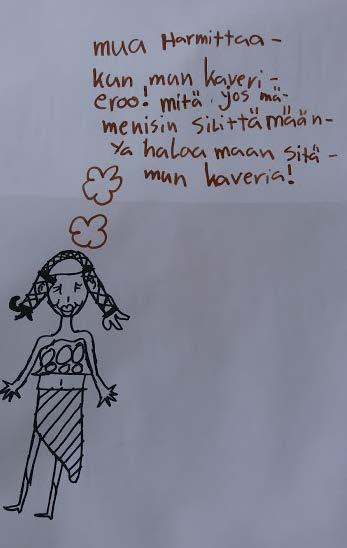 mua Harmittaa-
kun mun kaveri-
eroo! mitä jos mä-
menisin silittämään-
ya halaa maan sitä-
mun kaveria!